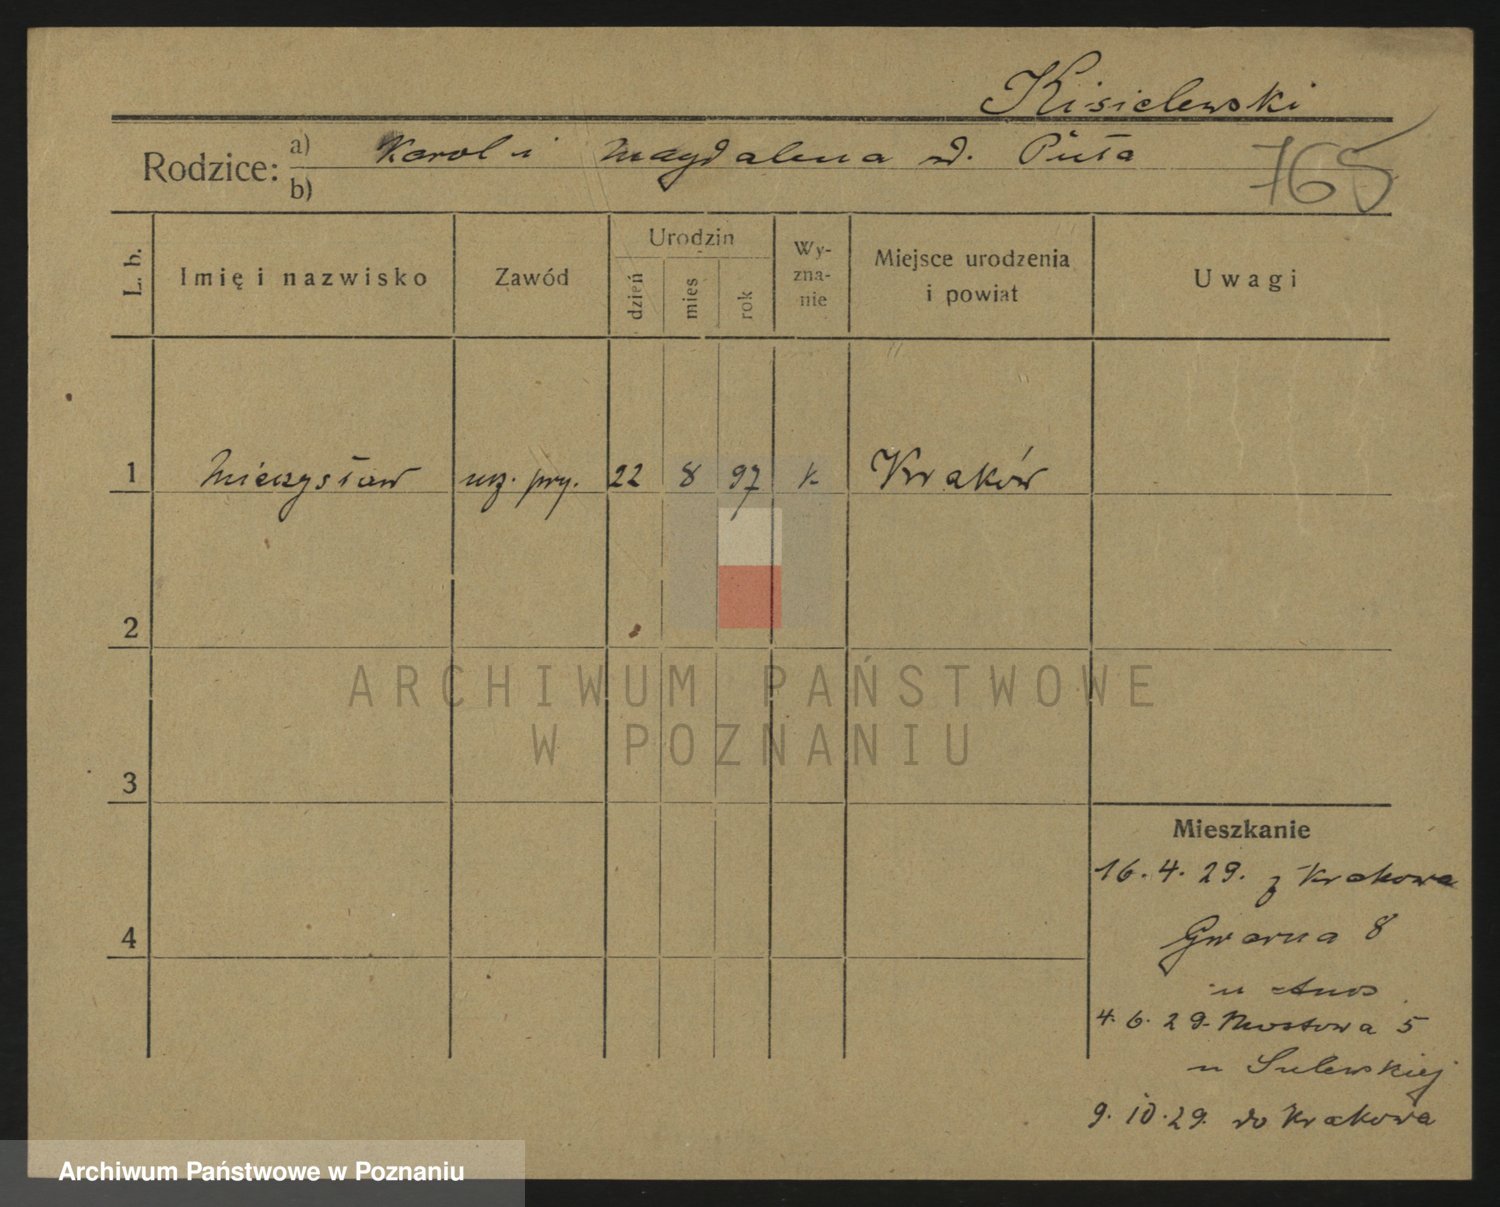 Kisielewski
Rodzice: a) Karol i Magdalena d. Piuła
b)
765
L. b.
Imię i nazwisko
Zawód
Urodzin
dzień
mies
rok
Wy-
zna-
nie
Miejsce urodzenia
i powiat
Uwagi
1 Mieczysław urz. pry. 22 8 97 k. Kraków
2
3
4
Mieszkanie
16. 4. 29. z Krakowa
Gwarna 8
u
4. 6. 29. Mostowa 5
u Sulewskiej
9. 10. 29. do Krakowa
ARCHIWUM PAŃSTWOWE
W POZNANIU
Archiwum Państwowe w Poznaniu